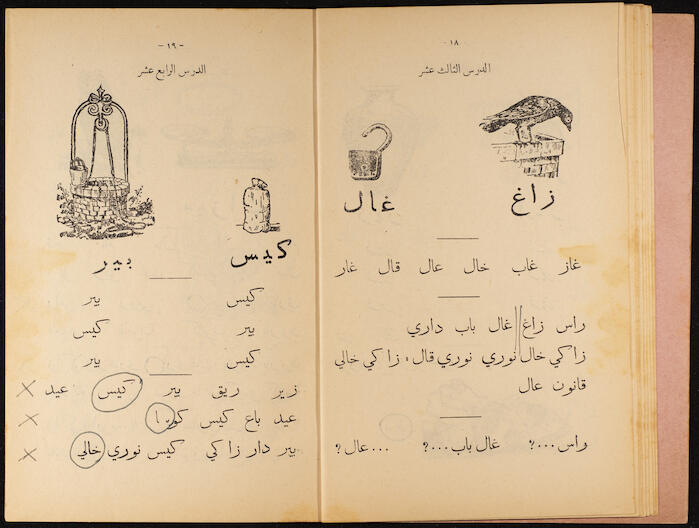 - ١٨ -
الدرس الثالث عشر
زاغ غال
غاز غاب خال عال قال غار
راس زاغ غال باب داري
زاكي خال نوري نوري قال: زاكي خالي
قانون عال
راس ...؟ غال باب ...؟ ... عال؟
- ١٩ -
الدرس الرابع عشر
كيس بير
كيس بير
بير كيس
كيس بير
زير ريق بير كيس عيد
عيد باع كيس
بير دار زاكي كيس نوري خالي